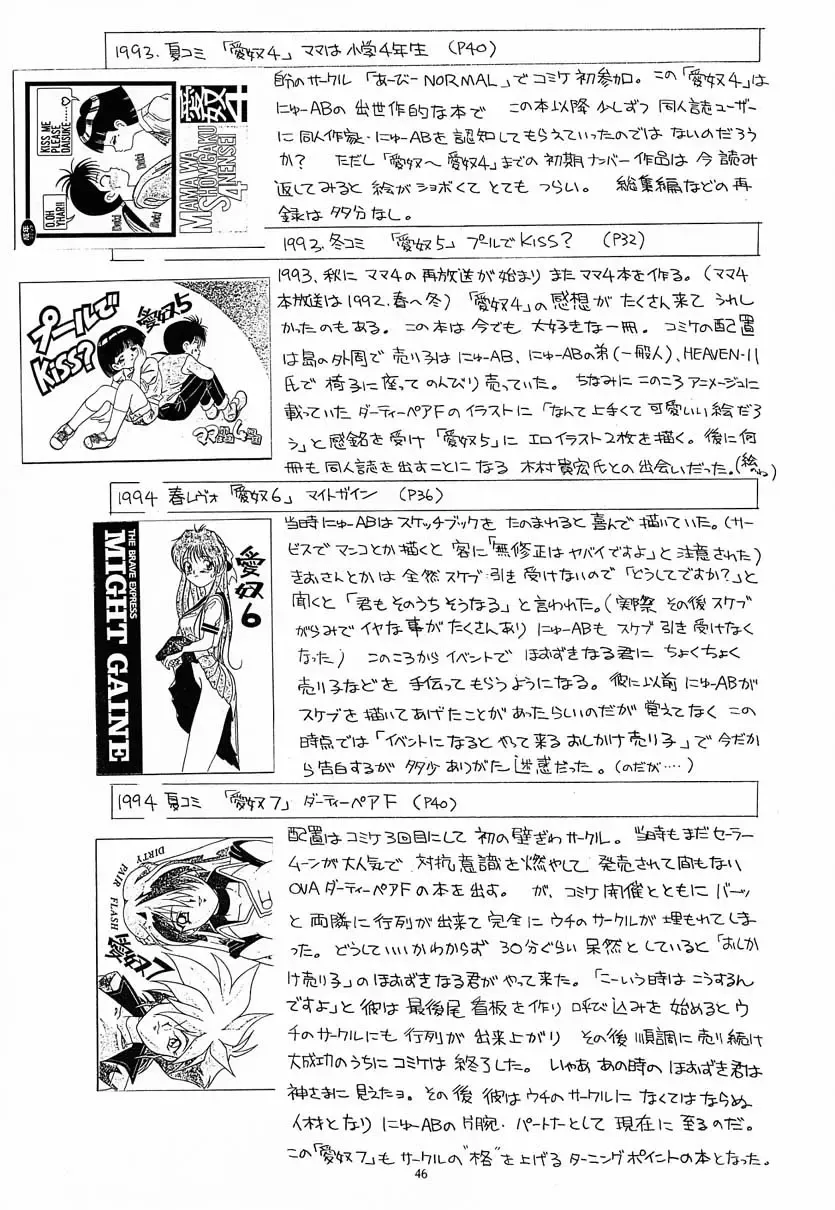 1993.夏コミ 「愛奴4」 ママは小学4年生 (P40)
KISS ME
PLEASE
DAISUKE.....
O.OH
YHARII
Dokki
Dokki
愛奴4
MAMA WA
SHOWGAKU
4NENSEI
自分のサークル「あーびーNORMAL」でコミケ初参加。この「愛奴4」は
にゅーABの出世作的な本で この本以降少しずつ同人誌ユーザー
に同人作家・にゅーABを認知してもらえていったのではないのだろう
か? ただし「愛奴〜愛奴4」までの初期ナンバー作品は今読み
返してみると絵がショボくてとてもつらい。 総集編などの再
録は多分なし。
1993.冬コミ 「愛奴5」プールでKiss? (P32)
プールで
Kiss?
愛奴5
ママは小学4年生
1993.秋にママ4の再放送が始まりまたママ4本を作る。(ママ4
本放送は1992.春〜冬)「愛奴4」の感想がたくさん来てうれし
かったのもある。この本は今でも大好きな一冊。コミケの配置
は島の外周で売り子はにゅーAB、にゅーABの弟(一般人)、HEAVEN-11
氏で椅子に座ってのんびり売っていた。ちなみにこのころアニメージュに
載っていたダーティーペアFのイラストに「なんて上手くて可愛いい絵だろ
う」と感銘を受け「愛奴5」にエロイラスト2枚を描く。後に何
冊も同人誌を出すことになる木村貴宏氏との出会いだった。(絵のね)
1994 春レヴォ「愛奴6」マイトガイン (P36)
THE BRAVE EXPRESS
MIGHT GAINE
愛奴6
当時にゅーABはスケッチブックをたのまれると喜んで描いていた。(サー
ビスでマンコとか描くと客に「無修正はヤバイですよ」と注意された)
きおさんとかは全然スケブ引き受けないので「どうしてですか?」と
聞くと「君もそのうちそうなる」と言われた。(実際その後スケブ
がらみでイヤな事がたくさんありにゅーABもスケブ引き受けなく
なった) このころからイベントでほおずきなる君にちょくちょく
売り子などを手伝ってもらうようになる。彼に以前にゅーABが
スケブを描いてあげたことがあったらしいのだが覚えてなくこの
時点では「イベントになるとやって来るおしかけ売り子」で今だか
ら告白するが多少ありがた迷惑だった。(のだが‥‥)
1994 夏コミ 「愛奴7」ダーティーペアF (P40)
DIRTY
PAIR
FLASH
愛奴7
配置はコミケ3回目にして初の壁ぎわサークル。当時もまだセーラー
ムーンが大人気で対抗意識を燃やして発売されて間もない
OVAダーティーペアFの本を出す。 が、コミケ開催とともにバーッ
と両隣に行列が出来て完全にウチのサークルが埋もれてしま
った。どうしていいかわからず30分ぐらい呆然としていると「おしか
け売り子」のほおずきなる君がやって来た。「こーいう時はこうするん
ですよ」と彼は最後尾看板を作り呼び込みを始めるとウ
チのサークルにも行列が出来上がり その後順調に売り続け
大成功のうちにコミケは終了した。いやああの時のほおずき君は
神さまに見えたョ。その後彼はウチのサークルになくてはならぬ
人材となりにゅーABの片腕・パートナーとして現在に至るのだ。
この「愛奴7」もサークルの"格"を上げるターニングポイントの本となった。
46